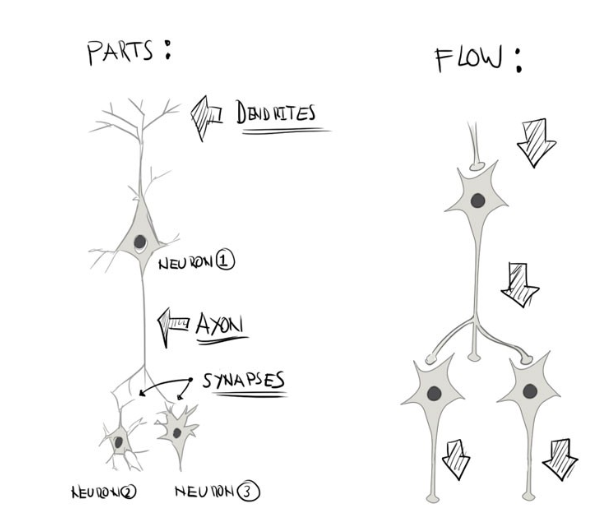 PARTS:
FLOW:
DENDRITES
NEURON 1
AXON
SYNAPSES
NEURON 2
NEURON 3